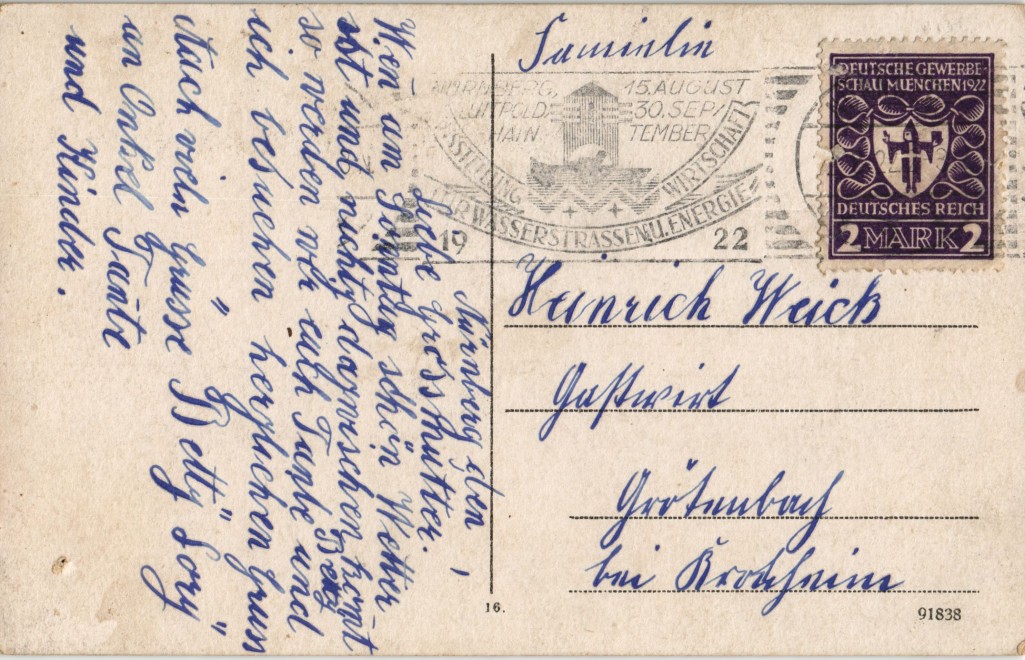 Familie
NÜRNBERG,
LUITPOLD-
HAIN
15. AUGUST
30. SEP/
TEMBER
AUSSTELLUNG FÜR WASSERSTRASSEN U. ENERGIE-WIRTSCHAFT
19 22
DEUTSCHE GEWERBE-
SCHAU MUENCHEN 1922
DEUTSCHES REICH
2 MARK 2
Heinrich Weick
Gastwirt
Grötenbach
bei Kronheim
16.
91838
Nürnberg den
Liebe Grossmutter.
Wen am Sontag schön Wetter
ist und nichts darweschen komt
so werden wir euch Tante Betty und
ich besuchen herzlichen Gruss
" Betty " Lory "
Nach viele Grüsse
an Onkel Tante
und Kinder.